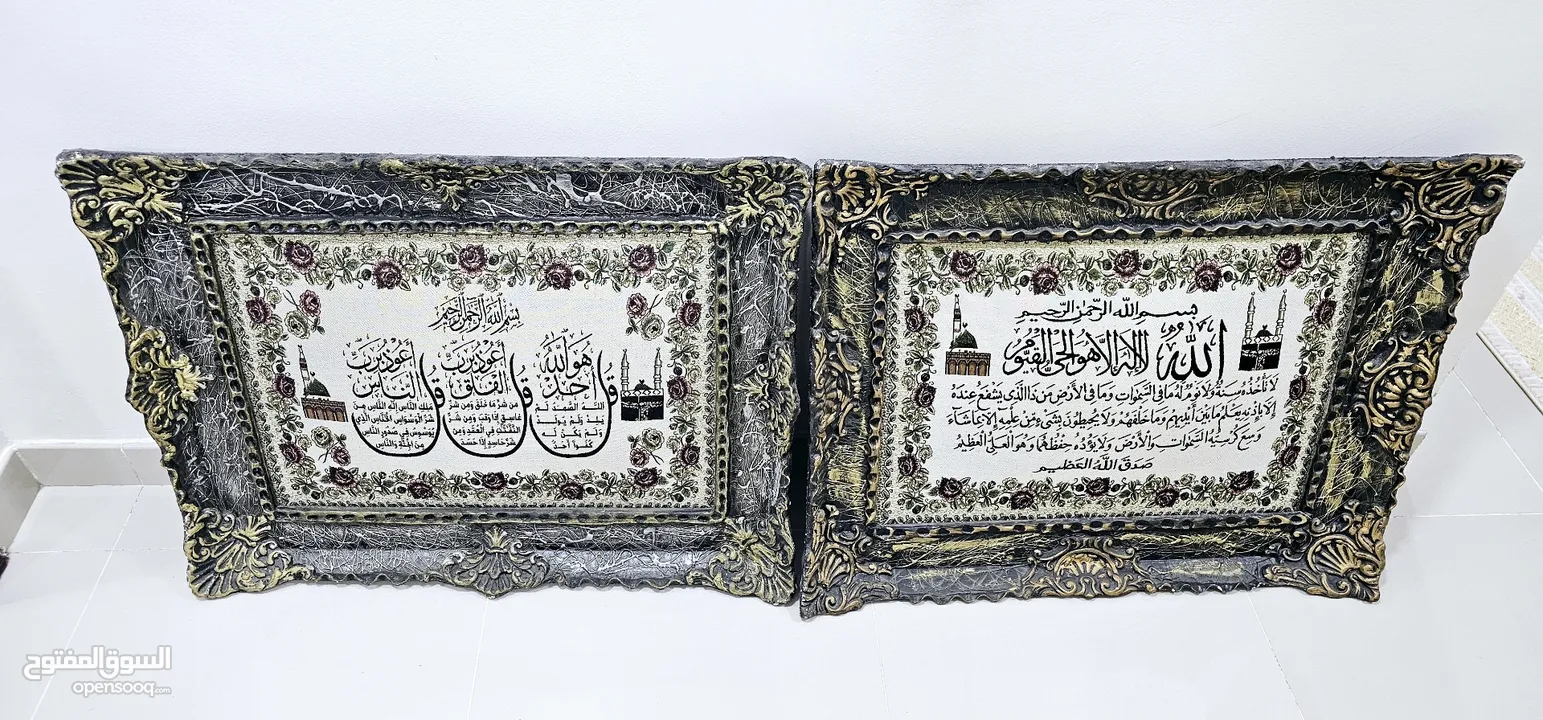 بسم الله الرحمن الرحيم
الله لا إله إلا هو الحي القيوم
لا تأخذه سنة ولا نوم له ما في السموات وما في الأرض من ذا الذي يشفع عنده
إلا بإذنه يعلم ما بين أيديهم وما خلفهم ولا يحيطون بشيء من علمه إلا بما شاء
وسع كرسيه السموات والأرض ولا يؤده حفظهما وهو العلي العظيم
صدق الله العظيم
بسم الله الرحمن الرحيم
قل هو الله
أحد
الله الصمد لم
يلد ولم يولد
ولم يكن له
كفوا أحد
قل أعوذ برب
الفلق
من شر ما خلق ومن شر
غاسق إذا وقب ومن شر
النفاثات في العقد ومن
شر حاسد إذا حسد
قل أعوذ برب
الناس
ملك الناس إله الناس من
شر الوسواس الخناس الذي
يوسوس في صدور الناس
من الجنة والناس
السوق المفتوح
opensooq.com